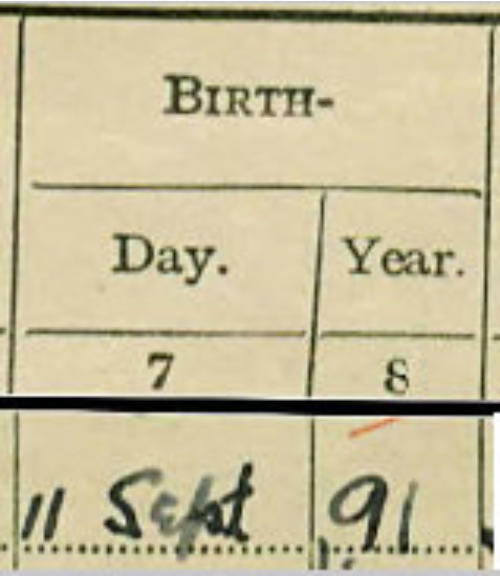 BIRTH-
Day. Year.
7 8
11 Sept 91